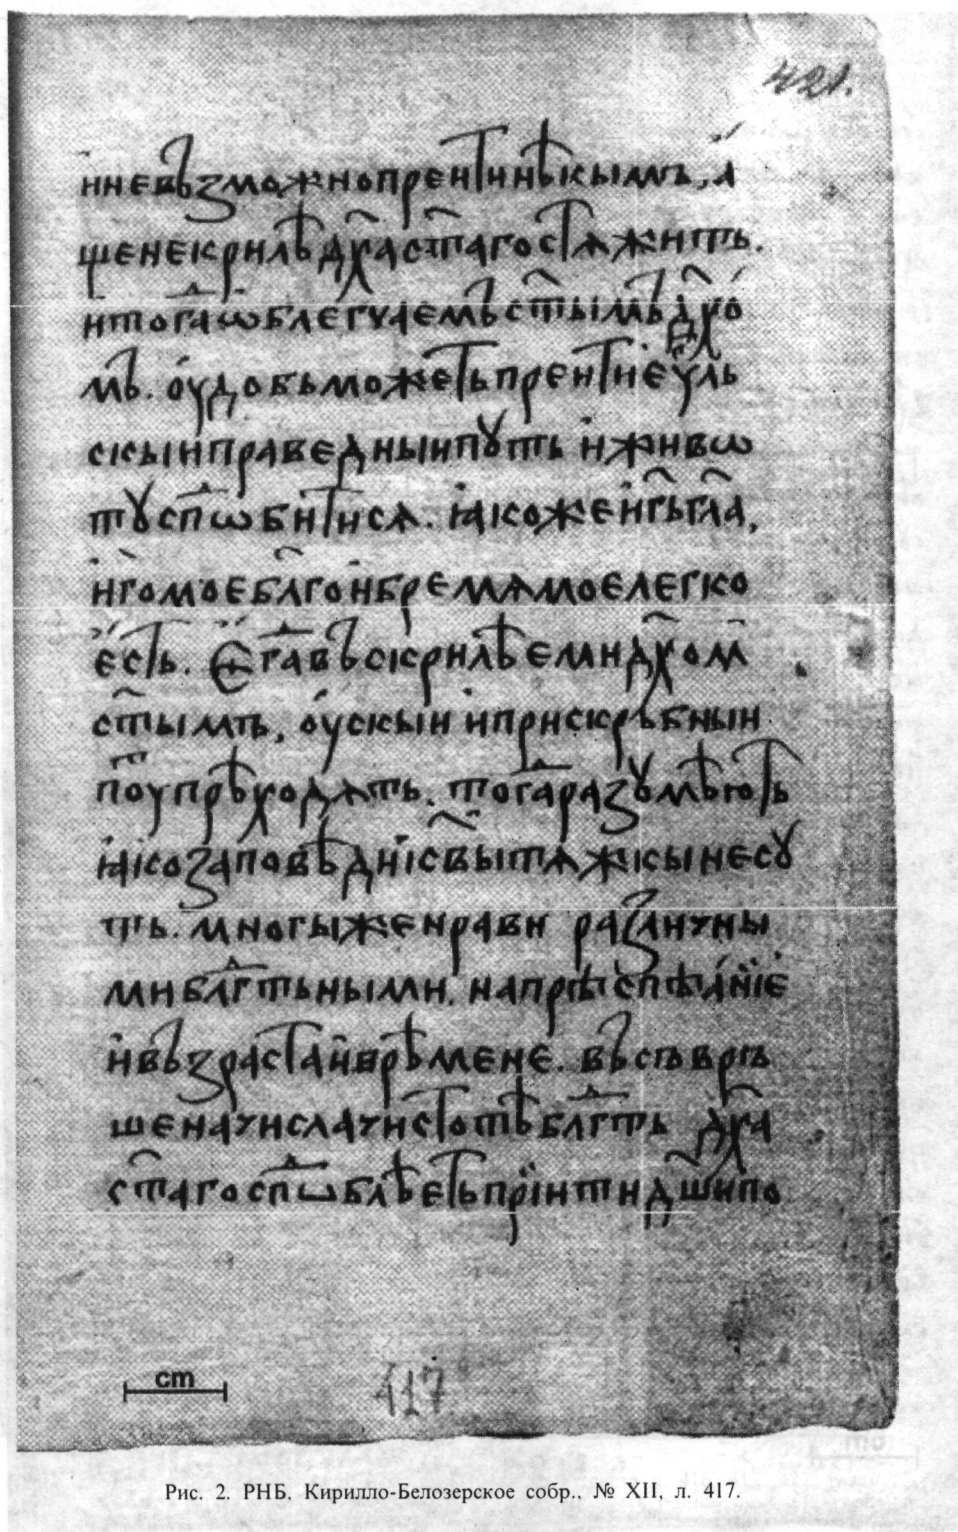 421.
и невъзможно преити нѣкымъ, а
ще не крилѣ дх҃а ст҃аго стѧжить.
и тогд҃а ѡблегчаемъ ст҃ымъ дх҃о
мъ. оудобь можеть преити е҆ѵль
скыи праведныи пꙋть и живѡ
тꙋ спⷣѡбитисѧ. ꙗкоже и гь҃ гл҃а,
иго мое бл҃го и бремѧ мое легко
есть. Егдⷣа въскрилѣеми дх҃ом
ст҃ымъ, оускыи и прискръбныи
поу҃ прѣходѧть. тогдⷣа разꙋмѣють
ꙗко заповѣди хс҃вы тѧжкы не сꙋ
ть. многы же нрави различны
ми блгⷣтьными, на прѣспѣанїе
и възраста и врѣмене. въ съвръ
шена числа чистотѣ блгⷣть дх҃а
ст҃аго спⷣѡблѣеть прїити дш҃и по
cm
417
Рис. 2. РНБ. Кирилло-Белозерское собр., № XII, л. 417.